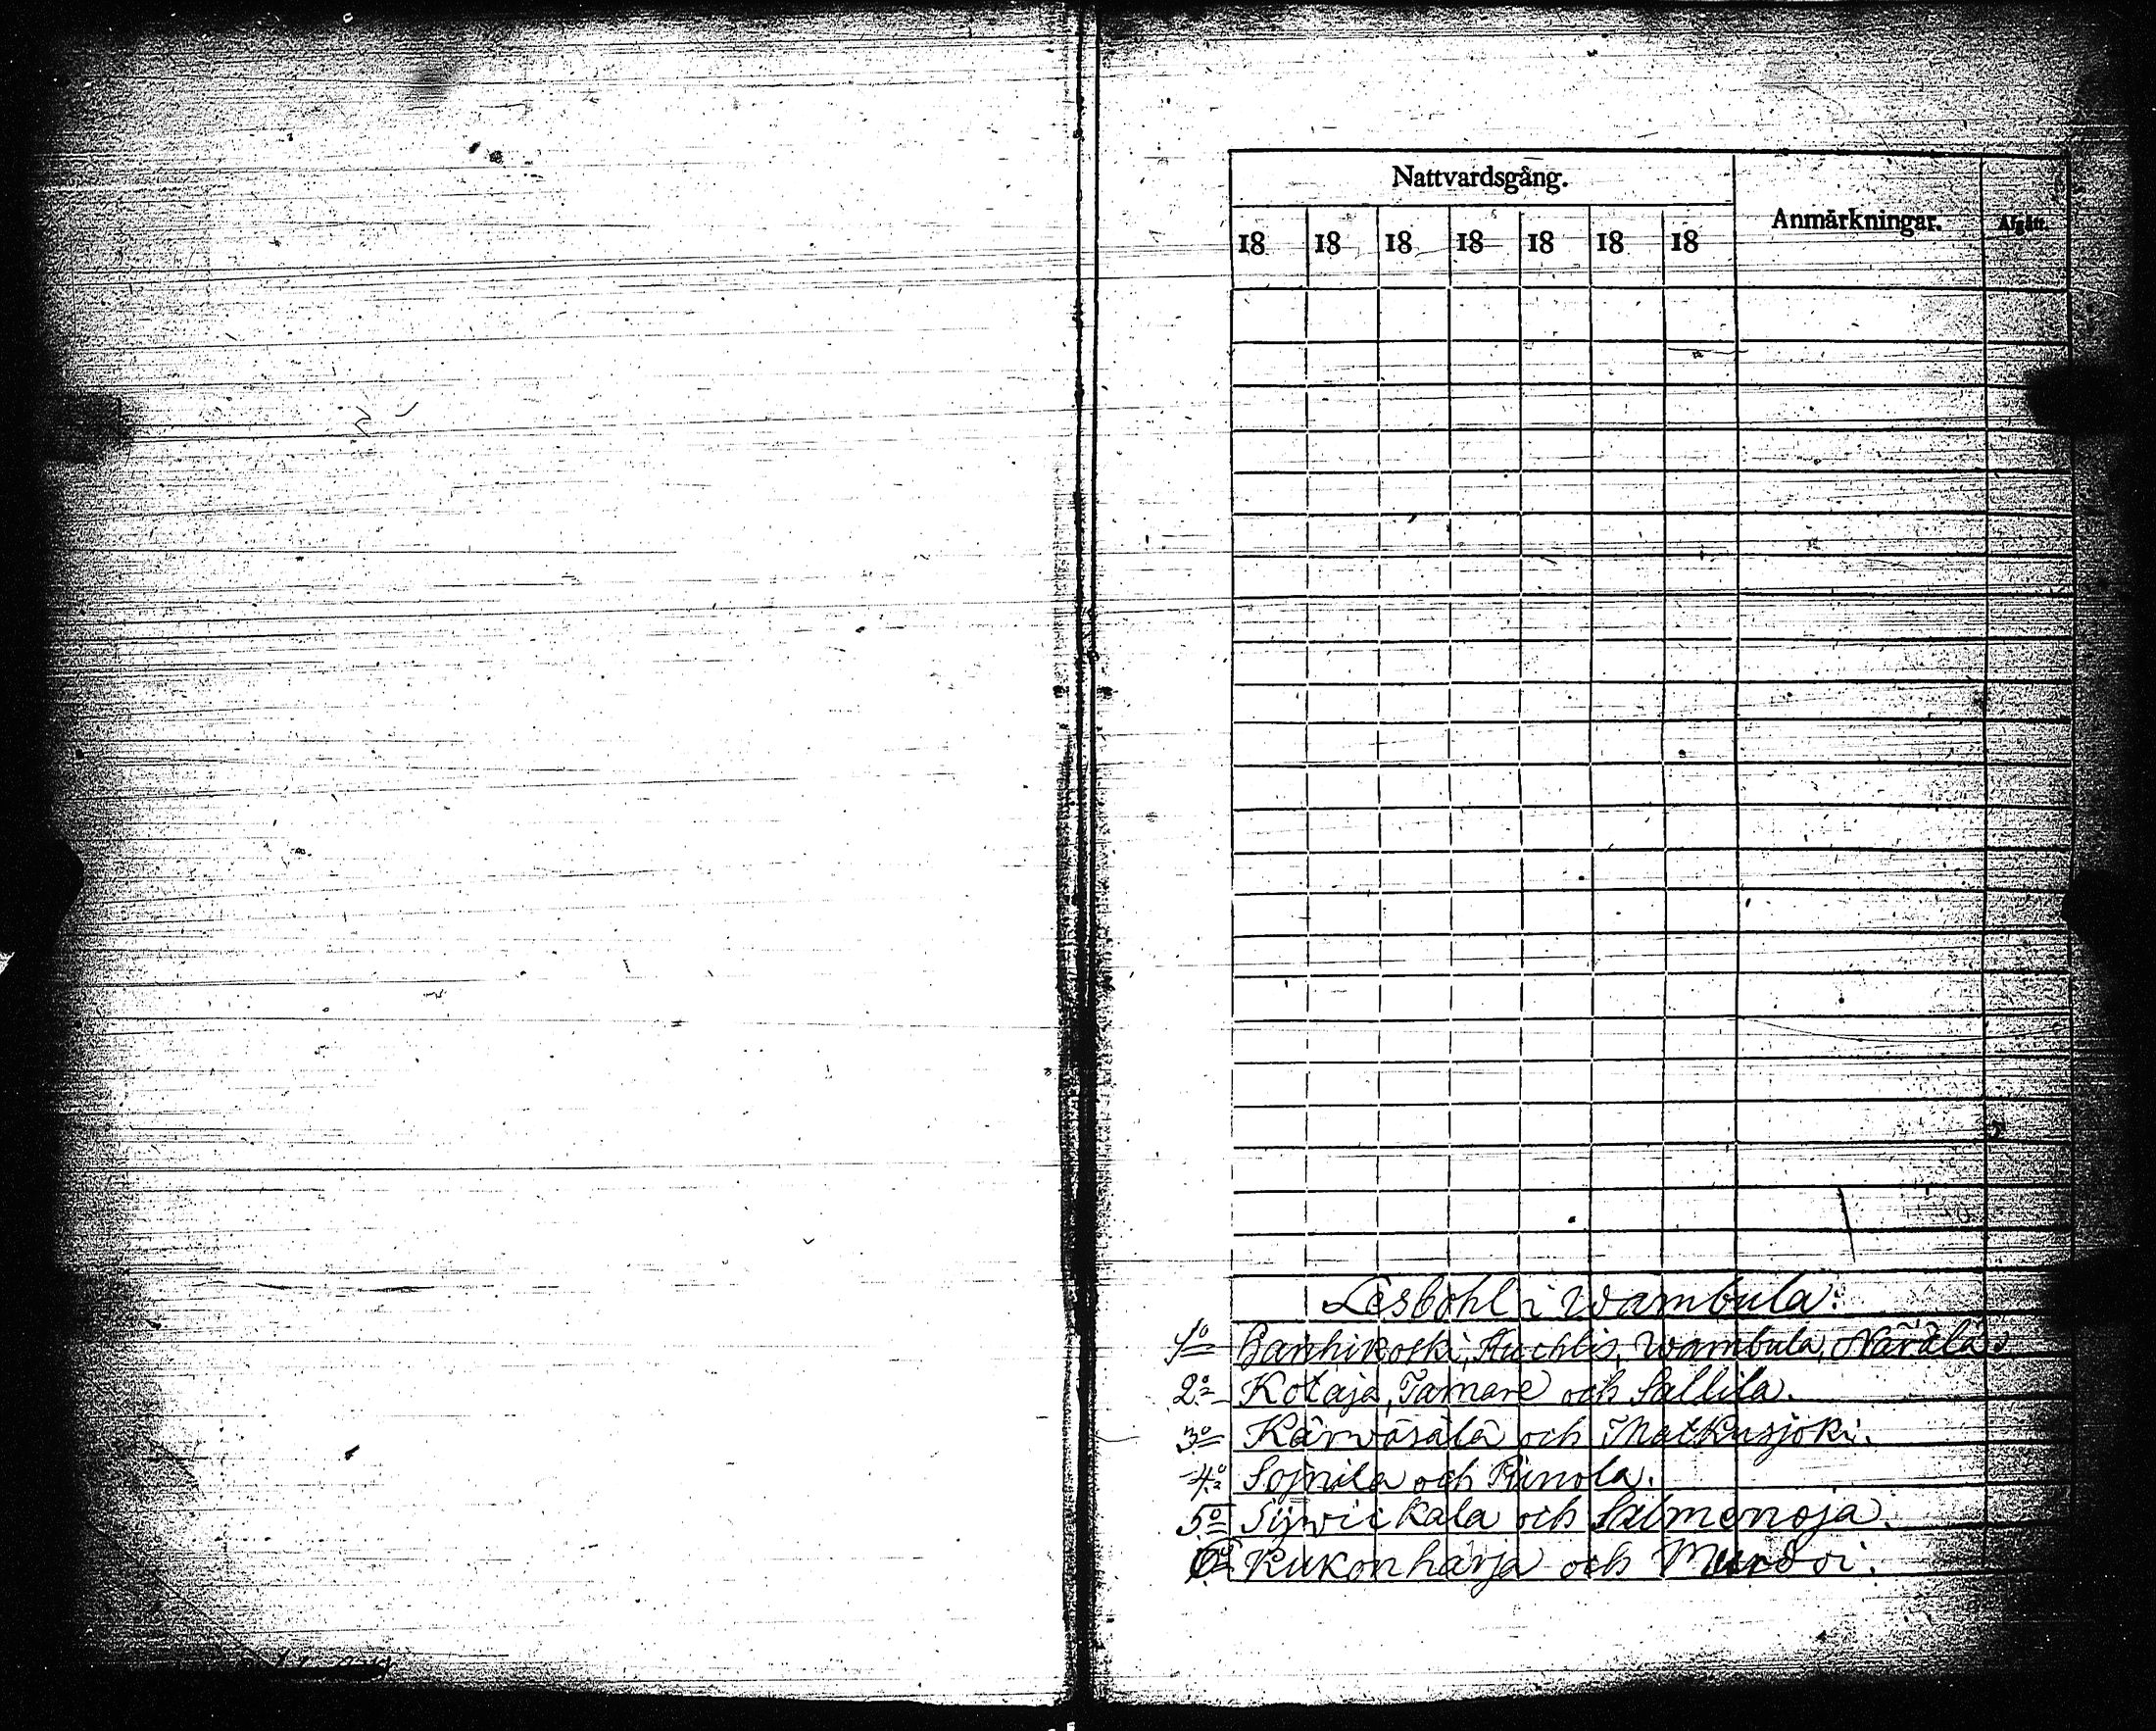 Nattvardsgång.
Anmärkningar.
Afgått.
18 18 18 18 18 18 18
Lesbohl i Wambula:
1º Hanhikoski, Huchtis, Wambula, Närälä
2º Kotaja, Tamare och Sallila.
3º Kärwäsälä och Matkusjoki.
4º Soinila och Rinola.
5º Sÿwickala och Salmenoja.
6º Kukonharja och Murdoi.